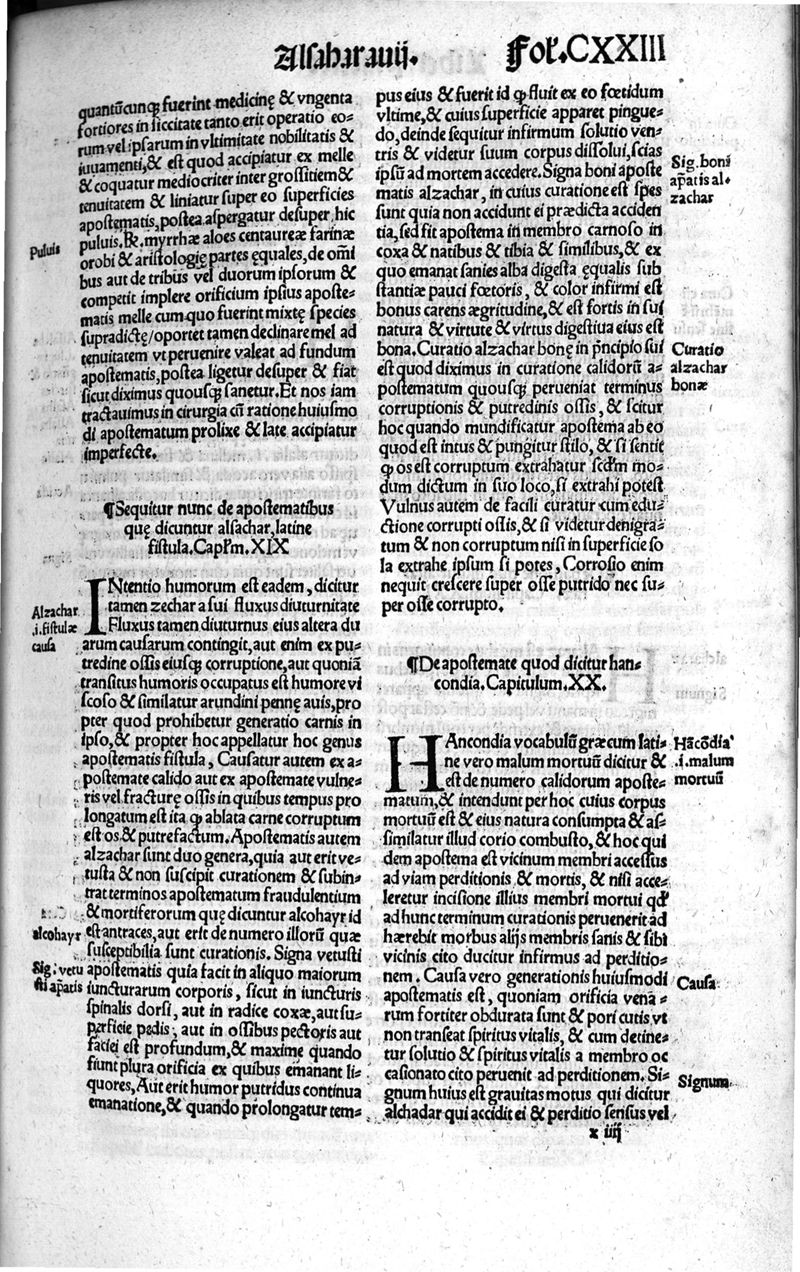 Alsaharauij. Fol. CXXIII
quantũcunqꝫ fuerint medicinę & vngenta
fortiores in ſiccitate tanto erit operatio eo-
rum vel ipſarum in vltimitate nobilitatis &
iuuamenti,& eſt quod accipiatur ex melle
& coquatur mediocriter inter groſſitiem&
tenuitatem & liniatur ſuper eo ſuperficies
apoſtematis,poſtea aſpergatur deſuper,hic
puluis. ℞. myrrhæ aloes centaureæ farinæ
Puluis
orobi & ariſtologię partes ęquales,de om̃i
bus aut de tribus vel duorum ipſorum &
competit implere orificium ipſius apoſte-
matis melle cum quo fuerint mixtę ſpecies
ſupradictę/oportet tamen declinare mel ad
tenuitatem vt peruenire valeat ad fundum
apoſtematis,poſtea ligetur deſuper & fiat
ſicut diximus quouſqꝫ ſanetur.Et nos iam
tractauimus in cirurgia cũ ratione huiuſmo
di apoſtematum prolixe & late accipiatur
imperfecte.
¶Sequitur nunc de apoſtematibus
quę dicuntur alſachar,latine
fiſtula. Capl̃m. XIX
INtentio humorum eſt eadem, dicitur
tamen zechar a ſui fluxus diuturnitate
Fluxus tamen diuturnus eius altera du
Alzachar
.i.fiſtulæ
cauſa
arum cauſarum contingit,aut enim ex pu-
tredine oſſis eiuſqꝫ corruptione,aut quoniã
tranſitus humoris occupatus eſt humore vi
ſcoſo & ſimilatur arundini pennę auis,pro
pter quod prohibetur generatio carnis in
ipſo,& propter hoc appellatur hoc genus
apoſtematis fiſtula, Cauſatur autem ex a-
poſtemate calido aut ex apoſtemate vulne-
ris vel fracturę oſſis in quibus tempus pro
longatum eſt ita ꝙ ablata carne corruptum
eſt os & putrefactum. Apoſtematis autem
alzachar ſunt duo genera,quia aut erit ve-
tuſta & non ſuſcipit curationem & ſubin-
trat terminos apoſtematum fraudulentium
& mortiferorum quę dicuntur alcohayr id
eſt antraces,aut erit de numero illorũ quæ
alcohayr
ſuſceptibilia ſunt curationis. Signa vetuſti
apoſtematis quia facit in aliquo maiorum
Sig. vetu
ſti ap̃atis
iuncturarum corporis, ſicut in iuncturis
ſpinalis dorſi, aut in radice coxæ,aut ſu-
perficie pedis, aut in oſſibus pectoris aut
faciei eſt profundum,& maxime quando
fiunt plura orificia ex quibus emanant li-
quores,Aut erit humor putridus continua
emanatione,& quando prolongatur tem-
pus eius & fuerit id ꝙ fluit ex eo fœtidum
vltime,& cuius ſuperficie apparet pingue-
do,deinde ſequitur infirmum ſolutio ven-
tris & videtur ſuum corpus diſſolui,ſcias
ipſũ ad mortem accedere. Signa boni apoſte
matis alzachar, in cuius curatione eſt ſpes
Sig. boni
ap̃atis al-
zachar
ſunt quia non accidunt ei prædicta acciden
tia,ſed ſit apoſtema in membro carnoſo in
coxa & natibus & tibia & ſimilibus,& ex
quo emanat ſanies alba digeſta ęqualis ſub
ſtantiæ pauci fœtoris, & color infirmi eſt
bonus carens ægritudine,& eſt fortis in ſui
natura & virtute & virtus digeſtiua eius eſt
bona. Curatio alzachar bonę in pñcipio ſui
eſt quod diximus in curatione calidorũ a-
poſtematum quouſqꝫ perueniat terminus
Curatio
alzachar
bonæ
corruptionis & putredinis oſſis, & ſcitur
hoc quando mundificatur apoſtema ab eo
quod eſt intus & pungitur ſtilo, & ſi ſentit
ꝙ os eſt corruptum extrahatur ſcd̃m mo-
dum dictum in ſuo loco,ſi extrahi poteſt
Vulnus autem de facili curatur cum edu-
ctione corrupti oſſis,& ſi videtur denigra-
tum & non corruptum niſi in ſuperficie ſo
la extrahe ipſum ſi potes, Corroſio enim
nequit creſcere ſuper oſſe putrido nec ſu-
per oſſe corrupto.
¶De apoſtemate quod dicitur han-
condia. Capitulum. XX.
HAncondia vocabulũ græcum lati-
ne vero malum mortuũ dicitur &
eſt de numero calidorum apoſte-
Hãcõdia
.i.malum
mortuũ
matum,& intendunt per hoc cuius corpus
mortuũ eſt & eius natura conſumpta & aſ-
ſimilatur illud corio combuſto, & hoc qui
dem apoſtema eſt vicinum membri acceſſus
ad viam perditionis & mortis, & niſi acce-
leretur inciſione illius membri mortui qd̃
ad hunc terminum curationis peruenerit ad
hærebit morbus alijs membris ſanis & ſibi
vicinis cito ducitur infirmus ad perditio-
nem. Cauſa vero generationis huiuſmodi
Cauſa
apoſtematis eſt, quoniam orificia venã-
rum fortiter obdurata ſunt & pori cutis vt
non tranſeat ſpiritus vitalis, & cum detine-
tur ſolutio & ſpiritus vitalis a membro oc
caſionato cito peruenit ad perditionem. Si-
gnum huius eſt grauitas motus qui dicitur
Signum
alchadar qui accidit ei & perditio ſenſus vel
x iiij